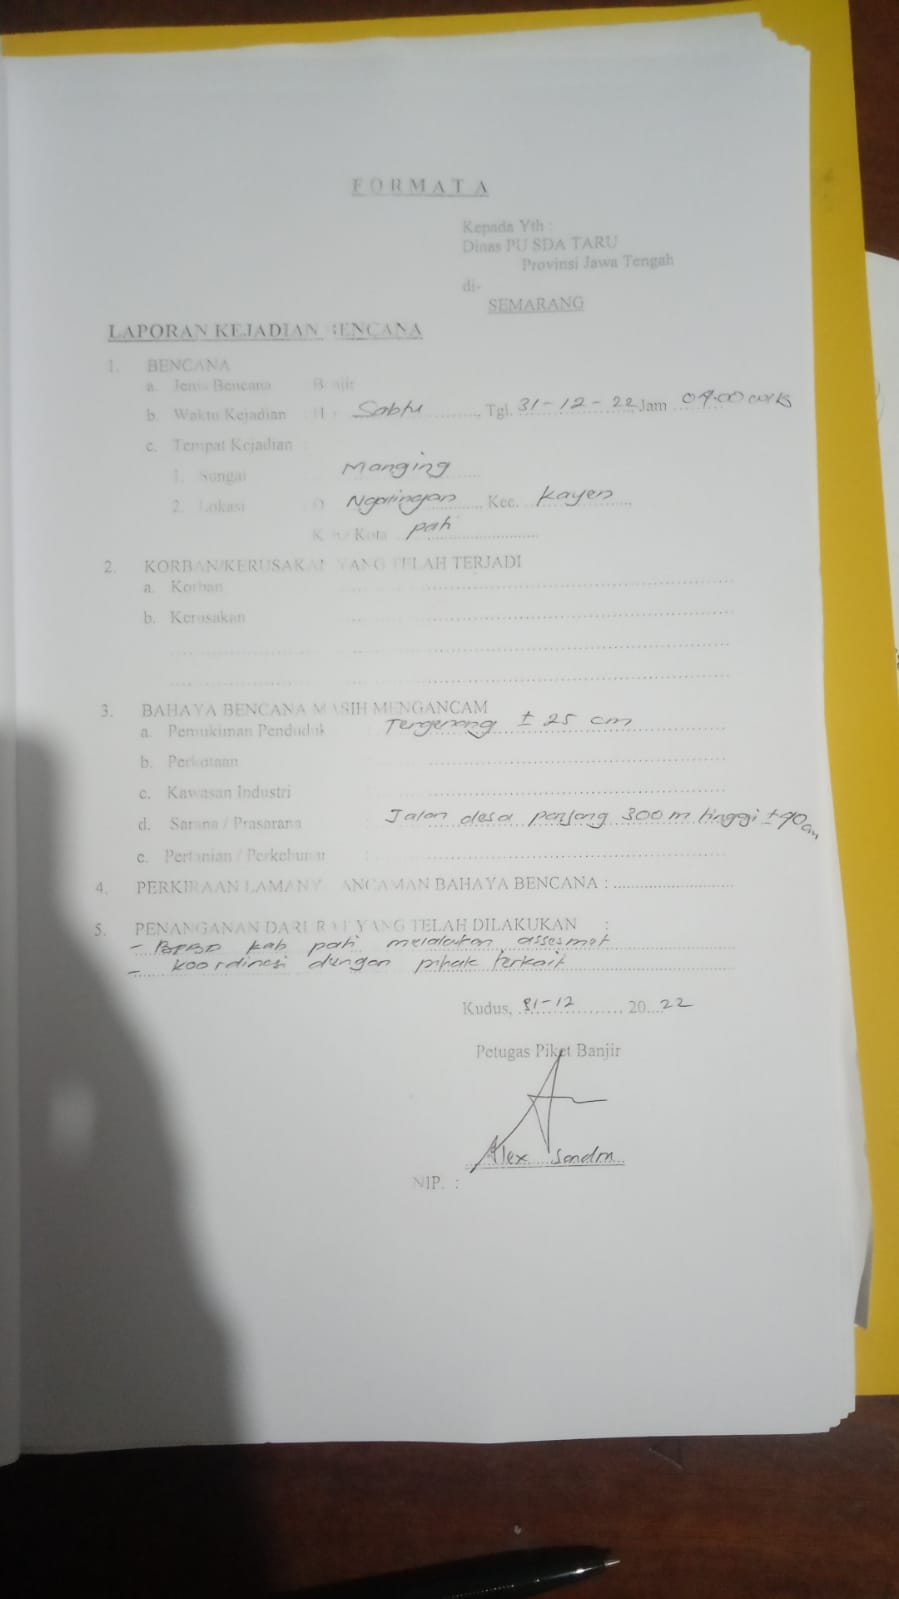 FORMAT A
Kepada Yth :
Dinas PU SDA TARU
Provinsi Jawa Tengah
di-
SEMARANG
LAPORAN KEJADIAN BENCANA
1. BENCANA
a. Jenis Bencana B njir
b. Waktu Kejadian : H Sabtu, Tgl. 31-12-22 Jam
c. Tempat Kejadian :
1. Sungai Manging
2. Lokasi D Ngalingan, Kec. Kayen
Kab / Kota pati
2. KORBAN/KERUSAKAN YANG TELAH TERJADI
a. Korban
b. Kerusakan
3. BAHAYA BENCANA MASIH MENGANCAM
a. Pemukiman Penduduk : Tergenang ± 25 cm
b. Perkotaan
c. Kawasan Industri
d. Sarana / Prasarana : Jalan desa panjang 300 m tinggi ± cm
e. Pertanian / Perkebunan :
4. PERKIRAAN LAMANYA ANCAMAN BAHAYA BENCANA :
5. PENANGANAN DARURAT YANG TELAH DILAKUKAN :
- BPBD kab pati melakukan assesmet
- koordinasi dengan pihak terkait
Kudus, 31-12 2022
Petugas Piket Banjir
Alex Sandra
NIP. :